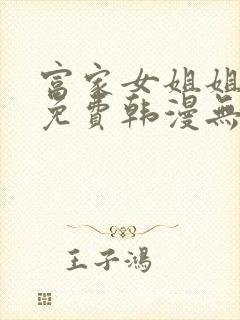 富家女姐姐
免費韩漫無
王子鴻